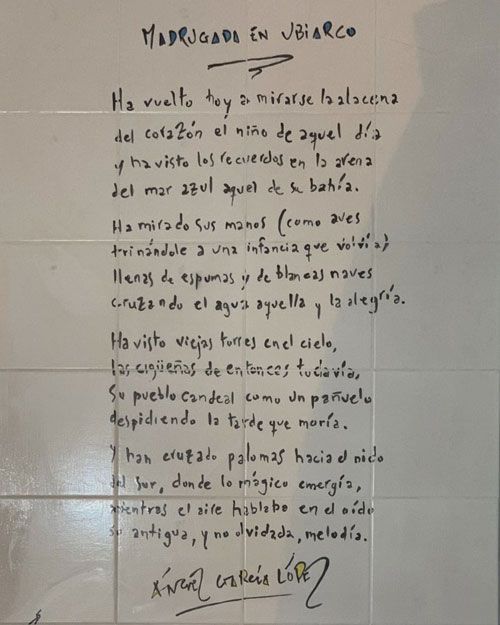 MADRUGADA EN UBIARCO
Ha vuelto hoy a mirarse la alacena
del corazón el niño de aquel día
y ha visto los recuerdos en la arena
del mar azul aquel de su bahía.
Ha mirado sus manos (como aves
trinándole a una infancia que volvía)
llenas de espumas y de blancas naves
cruzando el agua aquella y la alegría.
Ha visto viejas torres en el cielo,
las cigüeñas de entonces todavía,
su pueblo candeal como un pañuelo
despidiendo la tarde que moría.
Y han cruzado palomas hacia el nido
del Sur, donde lo mágico emergía,
mientras el aire hablaba en el oído
su antigua, y no olvidada, melodía.
ÁNGEL GARCÍA LÓPEZ